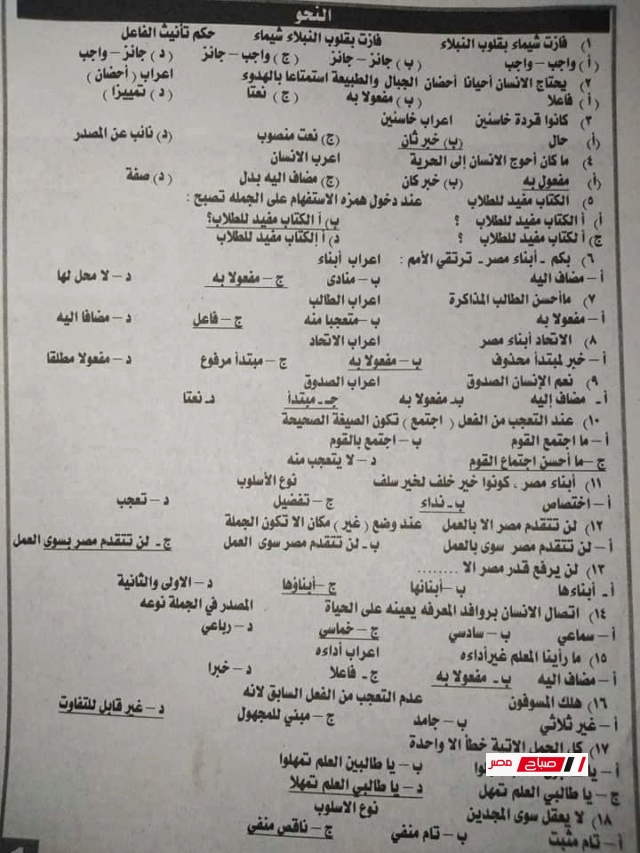 النحو
١) فازت شيماء بقلوب النبلاء فازت بقلوب النبلاء شيماء حكم تأنيث الفاعل
(أ) واجب – واجب (ب) جائز – جائز (ج) واجب – جائز (د) جائز – واجب
٢) يحتاج الانسان أحيانا أحضان الجبال والطبيعة استمتاعا بالهدوء اعراب (أحضان)
(أ) فاعلا (ب) مفعولا به (ج) نعتا (د) تمييزا)
٣) كانوا قردة خاسئين اعراب خاسئين
(أ) حال (ب) خبر ثان (ج) نعت منصوب (د) نائب عن المصدر
٤) ما كان أحوج الانسان إلى الحرية اعرب الانسان
(أ) مفعول به (ب) خبر كان (ج) مضاف اليه بدل (د) صفة
٥) الكتاب مفيد للطلاب عند دخول همزه الاستفهام على الجمله تصبح :
أ) أ الكتاب مفيد للطلاب ؟ ب) أ الكتاب مفيد للطلاب؟
ج) أ لكتاب مفيد للطلاب ؟ د) أ إلكتاب مفيد للطلاب
٦) بكم ـ أبناء مصر ـ ترتقي الأمم : اعراب أبناء
أ – مضاف اليه ب – منادى ج – مفعولا به د – لا محل لها
٧) ماأحسن الطالب المذاكرة اعراب الطالب
أ – مفعولا به ب – متعجبا منه ج – فاعل د – مضافا اليه
٨) الاتحاد أبناء مصر اعراب الاتحاد
أ – خبر لمبتدأ محذوف ب – مفعولا به ج – مبتدأ مرفوع د – مفعولا مطلقا
٩) نعم الإنسان الصدوق اعراب الصدوق
أ ـ مضاف إليه بـ مفعولا به جـ ـ مبتدأ دـ نعتا
١٠) عند التعجب من الفعل ( اجتمع ) تكون الصيغة الصحيحة
أ – ما اجتمع القوم ب – اجتمع بالقوم
ج – ما أحسن اجتماع القوم د – لا يتعجب منه
١١) أبناء مصر ، كونوا خير خلف لخير سلف نوع الأسلوب
أ – اختصاص ب ـ نداء ج – تفضيل د – تعجب
١٢) لن تتقدم مصر الا بالعمل عند وضع (غير) مكان الا تكون الجملة
أ – لن تتقدم مصر سوى بالعمل ب ـ لن تتقدم مصر سوى العمل ج ـ لن تتقدم مصر بسوى العمل
١٣) لن يرفع قدر مصر الا ........
أ ـ أبناءها ب – أبنائها ج – أبناؤها د – الاولى والثانية
١٤) اتصال الانسان بروافد المعرفه يعينه على الحياة المصدر في الجملة نوعه
أ – سماعي ب – سداسي ج – خماسي د – رباعي
١٥) ما رأينا المعلم غير أداءه اعراب أداءه
أ – مضاف اليه ب ـ مفعولا به ج ـ فاعلا د – خبرا
١٦) هلك المسوفون عدم التعجب من الفعل السابق لانه
أ – غير ثلاثي ب – جامد ج – مبني للمجهول د – غير قابل للتفاوت
١٧) كل الجمل الاتية خطأ الا واحدة
أ – ب – يا طالبين العلم تمهلوا
صباح مصر
ج – يا طالبي العلم تمهل د – يا طالبي العلم تمهلا
١٨) لا يعقل سوى المجدين نوع الاسلوب
أ – تام مثبت ب – تام منفي ج – ناقص منفي